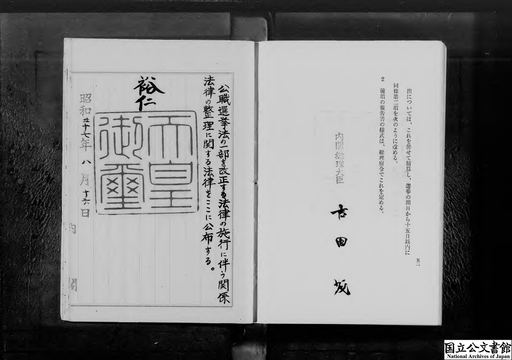 五二
出については、これを併せて精算し、選挙の期日から十五日以内に
同条第二項を次のように改める。
2 前項の報告書の様式は、総理府令でこれを定める。
内閣総理大臣
吉田茂
公職選挙法の一部を改正する法律の施行に伴う関係
法律の整理に関する法律をここに公布する。
裕仁
天皇
御璽
昭和二十七年八月十六日
内閣
国立公文書館
National Archives of Japan